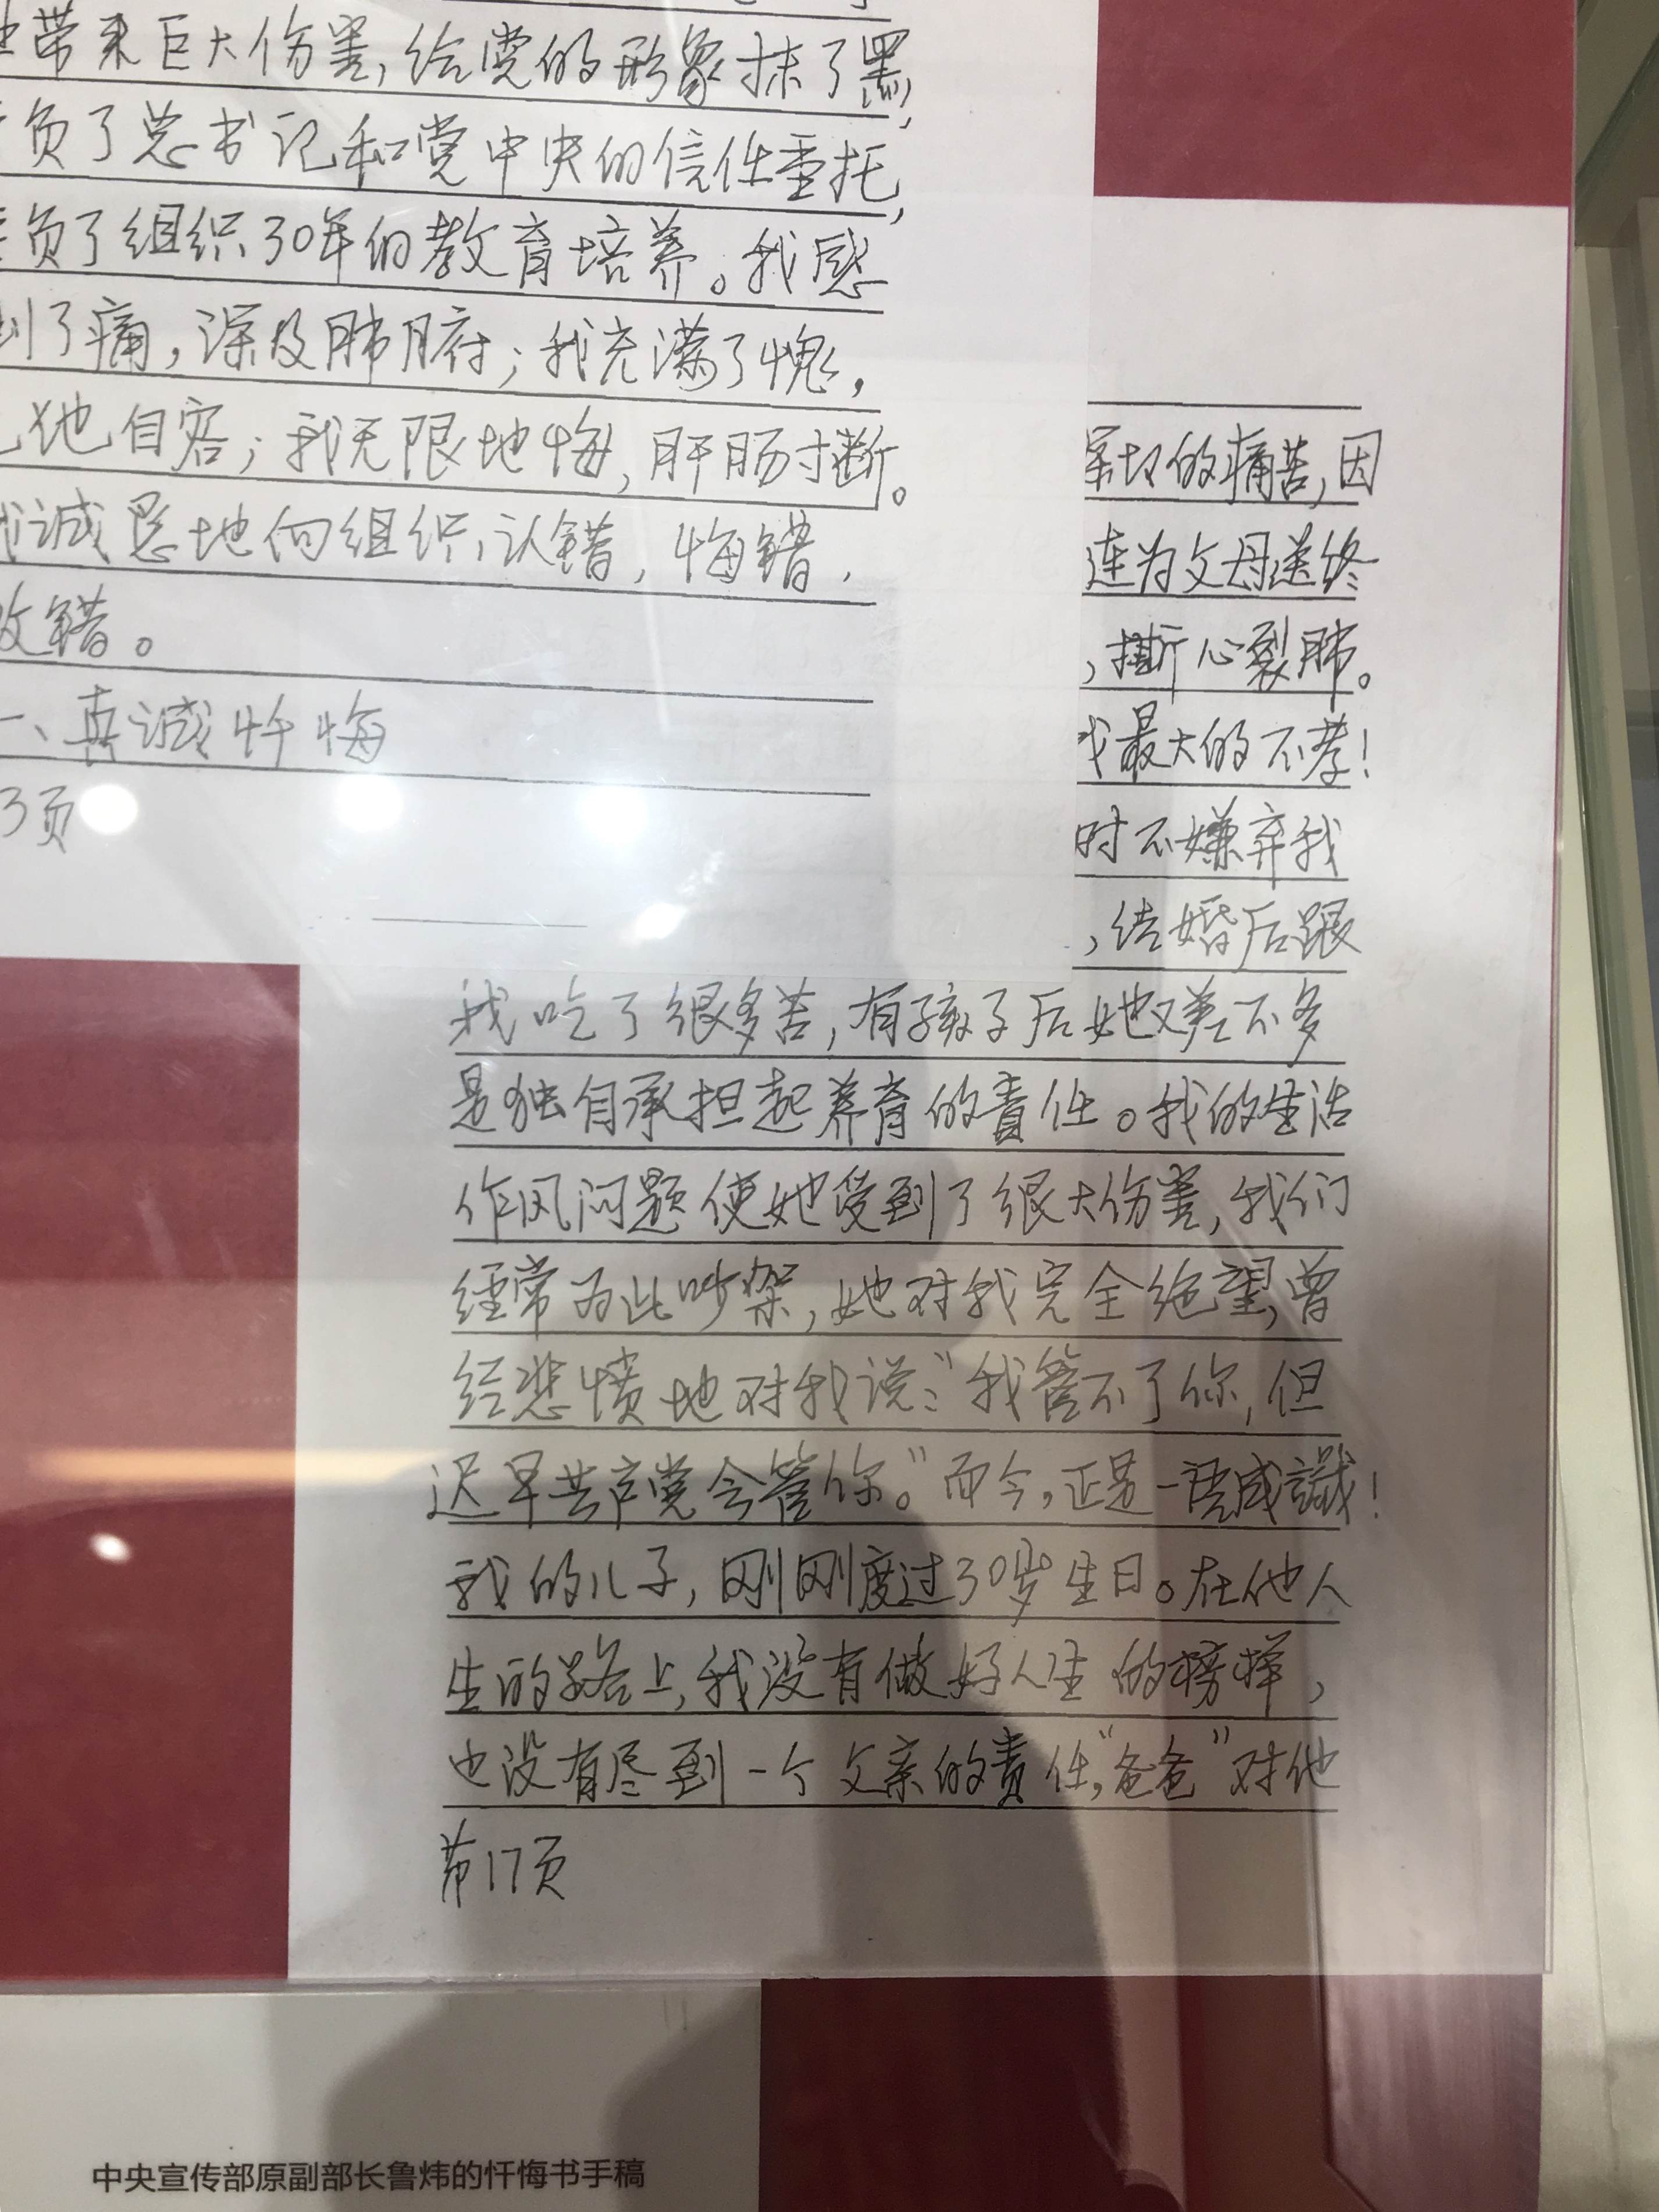 带来巨大伤害,给党的形象抹了黑,
负了总书记和党中央的信任重托,
负了组织30年的教育培养。我感
到了痛,深及肺腑;我充满了愧,
地自容;我无限地悔,肝肠寸断。
我诚恳地向组织认错,悔错,
改错。
一、真诚忏悔
3页
深切的痛苦,因
连为父母送终
,撕心裂肺。
我最大的不孝!
时不嫌弃我
,结婚后跟
我吃了很多苦,有孩子后她又差不多
是独自承担起养育的责任。我的生活
作风问题使她受到了很大伤害,我们
经常为此吵架,她对我完全绝望,曾
经悲愤地对我说:“我管不了你,但
迟早共产党会管你。”而今,正是一语成谶!
我的儿子,刚刚度过30岁生日。在他人
生的路上,我没有做好人生的榜样,
也没有尽到一个父亲的责任,“爸爸”对他
第17页
中央宣传部原副部长鲁炜的忏悔书手稿